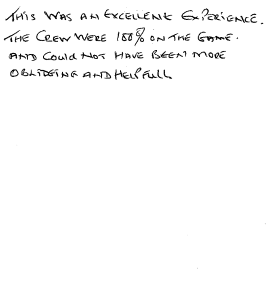 THIS WAS AN EXCELLENT EXPERIENCE.
THE CREW WERE 100% ON THE GAME.
AND COULD NOT HAVE BEEN MORE
OBLIDGING AND HELPFULL